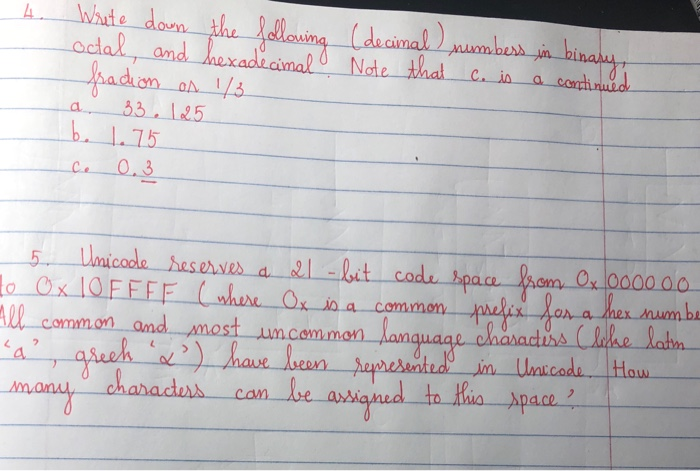 4. Write down the following (decimal) numbers in binary,
octal, and hexadecimal. Note that c. is a continued
fraction or 1/3
a. 33.125
b. 1.75
c. 0.3
5. Unicode reserves a 21-bit code space from 0x000000
to 0x10FFFF (where 0x is a common prefix for a hex numbe
All common and most uncommon language characters (like latin
'a', greek 'α') have been represented in Unicode. How
many characters can be assigned to this space?